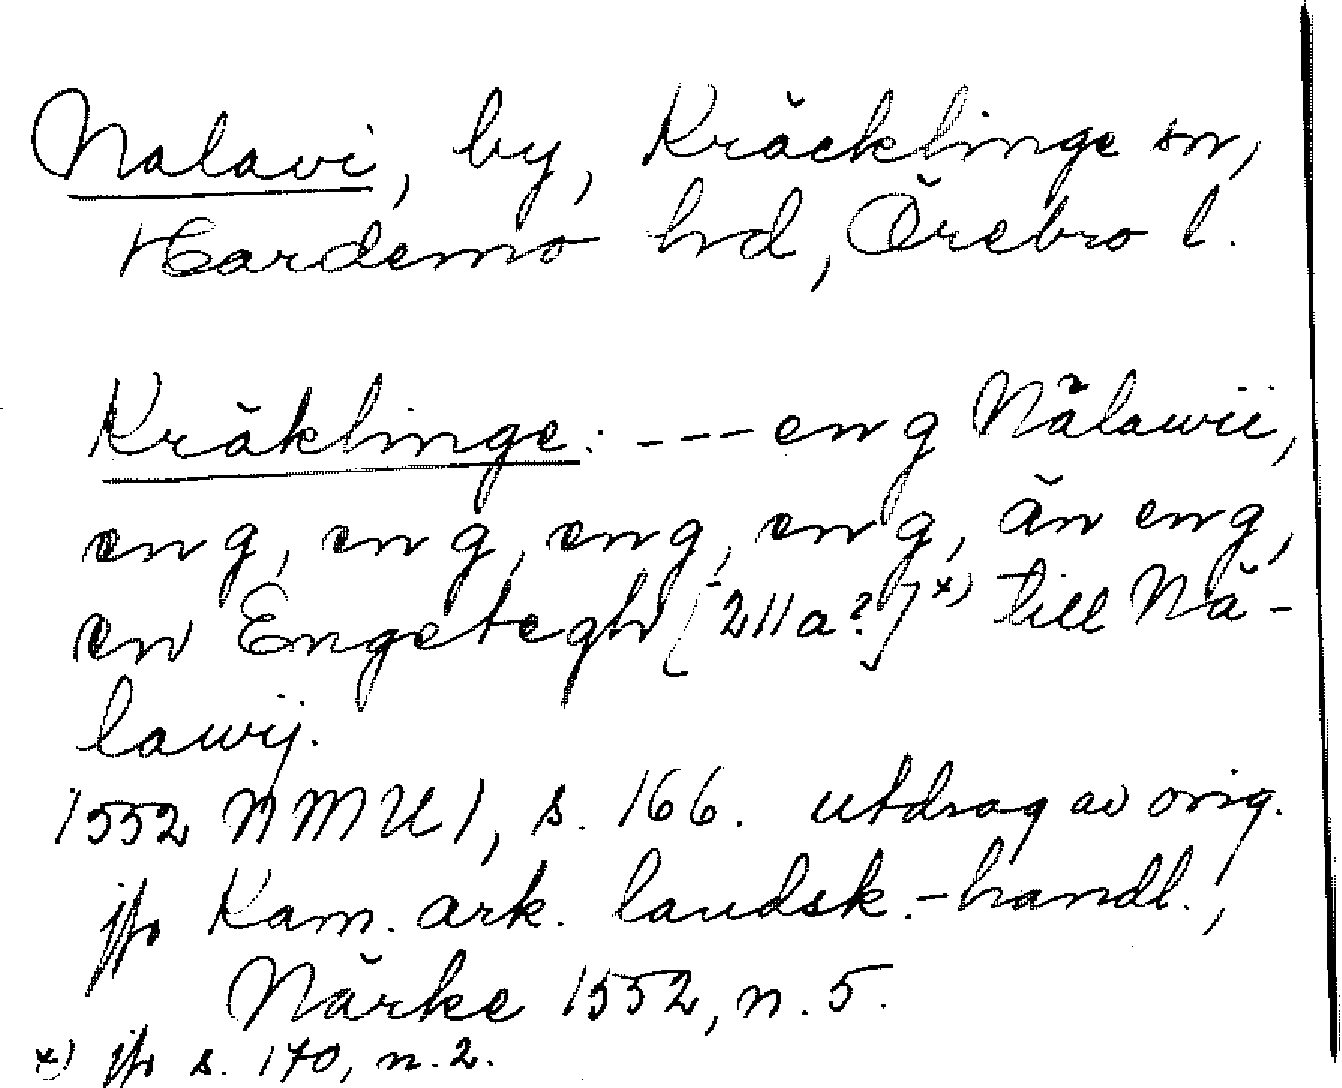 Nalavi, by, Kräcklinge sn,
Hardemo hd, Örebro l.
Kräklinge: --- eng Nälawii,
eng, eng, eng, eng, än eng,
en Engetegh [211a?]x) till Nä-
lawij.
1552 NMU 1, s. 166. utdrag av orig.
jfr Kam. ark. landsk.-handl.,
Närke 1552, n. 5.
x) jfr s. 170, n. 2.